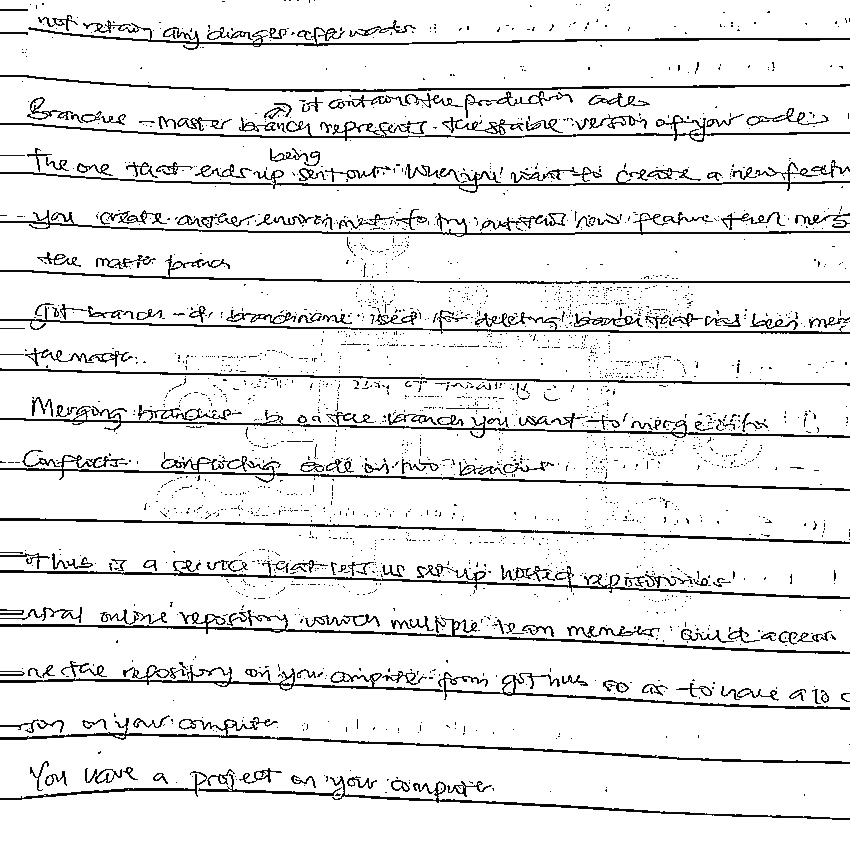 not retain any changes afterwards.
→ it contains the production code
Branches - master branch represents the stable version of your code
being
The one that ends up sent out. When you want to create a new featu
you create another environment to try out this new feature then merg
the master branch
git branch -d branchname used for deleting branch that has been mer
the master.
Merging branches - be on the branch you want to merge
Conflicts - conflicting code on two branches
thub is a service that lets us set up hosted repositories
online repository which multiple team members could access
ne the repository on your computer from github so as to have a lo c
on your computer
You have a project on your computer